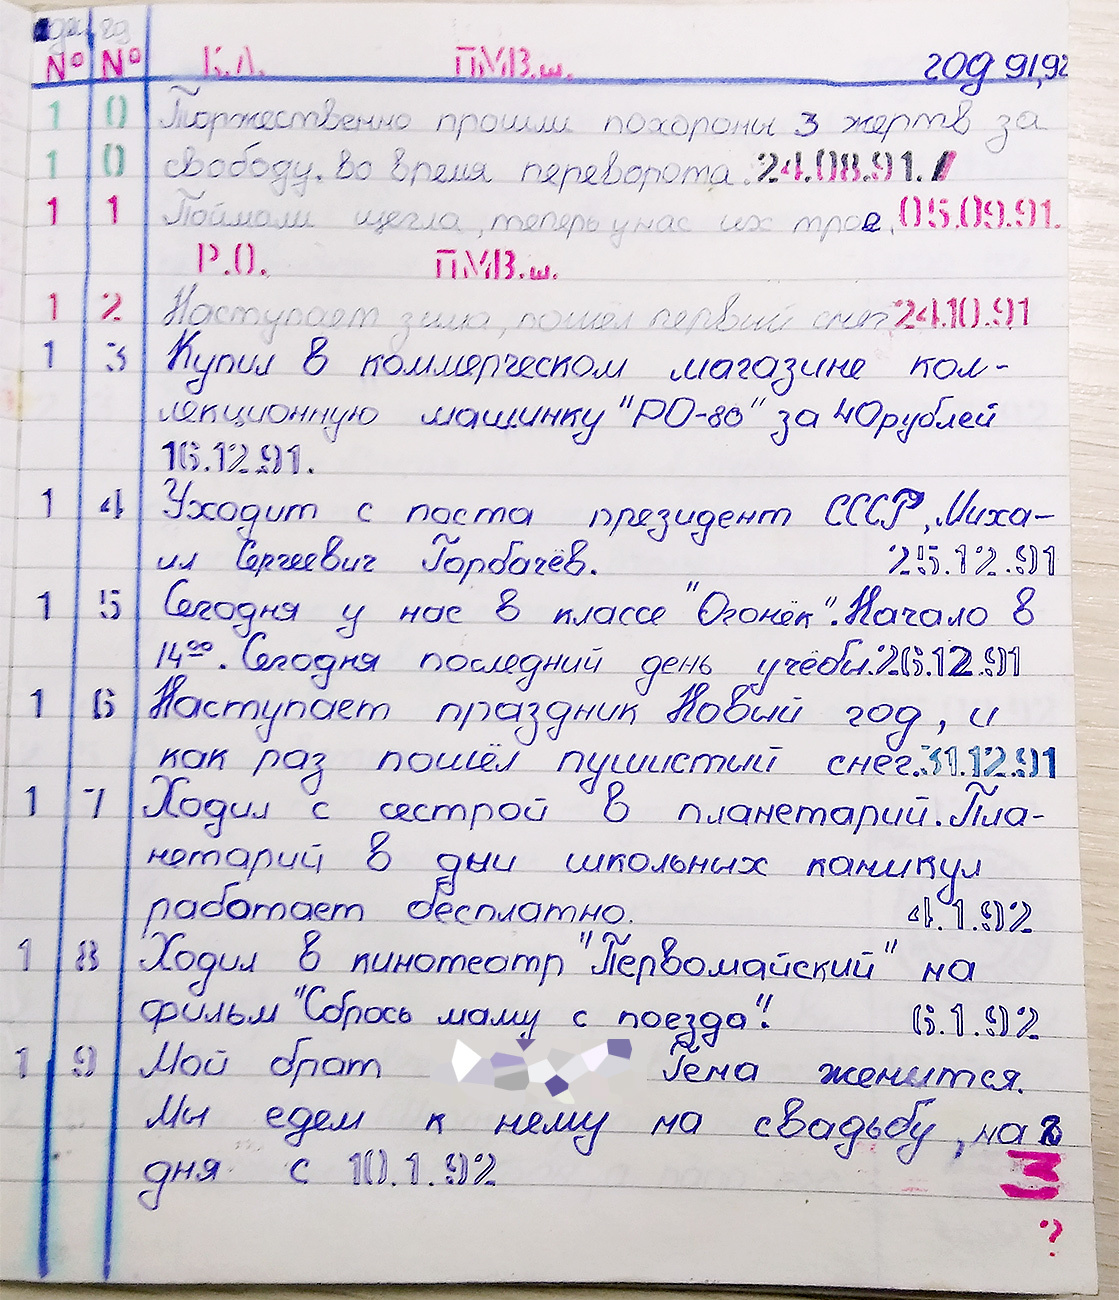 № № К.Л. ПМВ.ш. год 91,92
1 0 Торжественно прошли похороны 3 жертв за
1 0 свободу. во время переворота. 24.08.91.
1 1 Поймали щегла, теперь у нас их трое. 05.09.91.
Р.О. ПМВ.ш.
1 2 Наступает зима, пошёл первый снег 24.10.91
1 3 Купил в коммерческом магазине кол-
лекционную машинку "РО-80" за 40 рублей
16.12.91.
1 4 Уходит с поста президент СССР, Миха-
ил Сергеевич Горбачёв. 25.12.91
1 5 Сегодня у нас в классе "Огонёк". Начало в
14⁰⁰. Сегодня последний день учёбы. 26.12.91
1 6 Наступает праздник Новый год, и
как раз пошёл пушистый снег. 31.12.91
1 7 Ходил с сестрой в планетарий. Пла-
нетарий в дни школьных каникул
работает бесплатно. 4.1.92
1 8 Ходил в кинотеатр "Первомайский" на
фильм "Сбрось маму с поезда". 6.1.92
1 9 Мой брат Гена женится.
Мы едем к нему на свадьбу, на
дня с 10.1.92 3
?